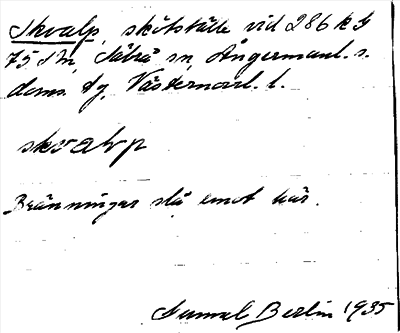 Skvalp, skötställe vid 286 k G
75 Sn, Nätra sn, Ångermanl. s.
doms. tg, Västernorrl. l.
skvalp
Bränningar slå emot här.
Gunnal Berlin 1935